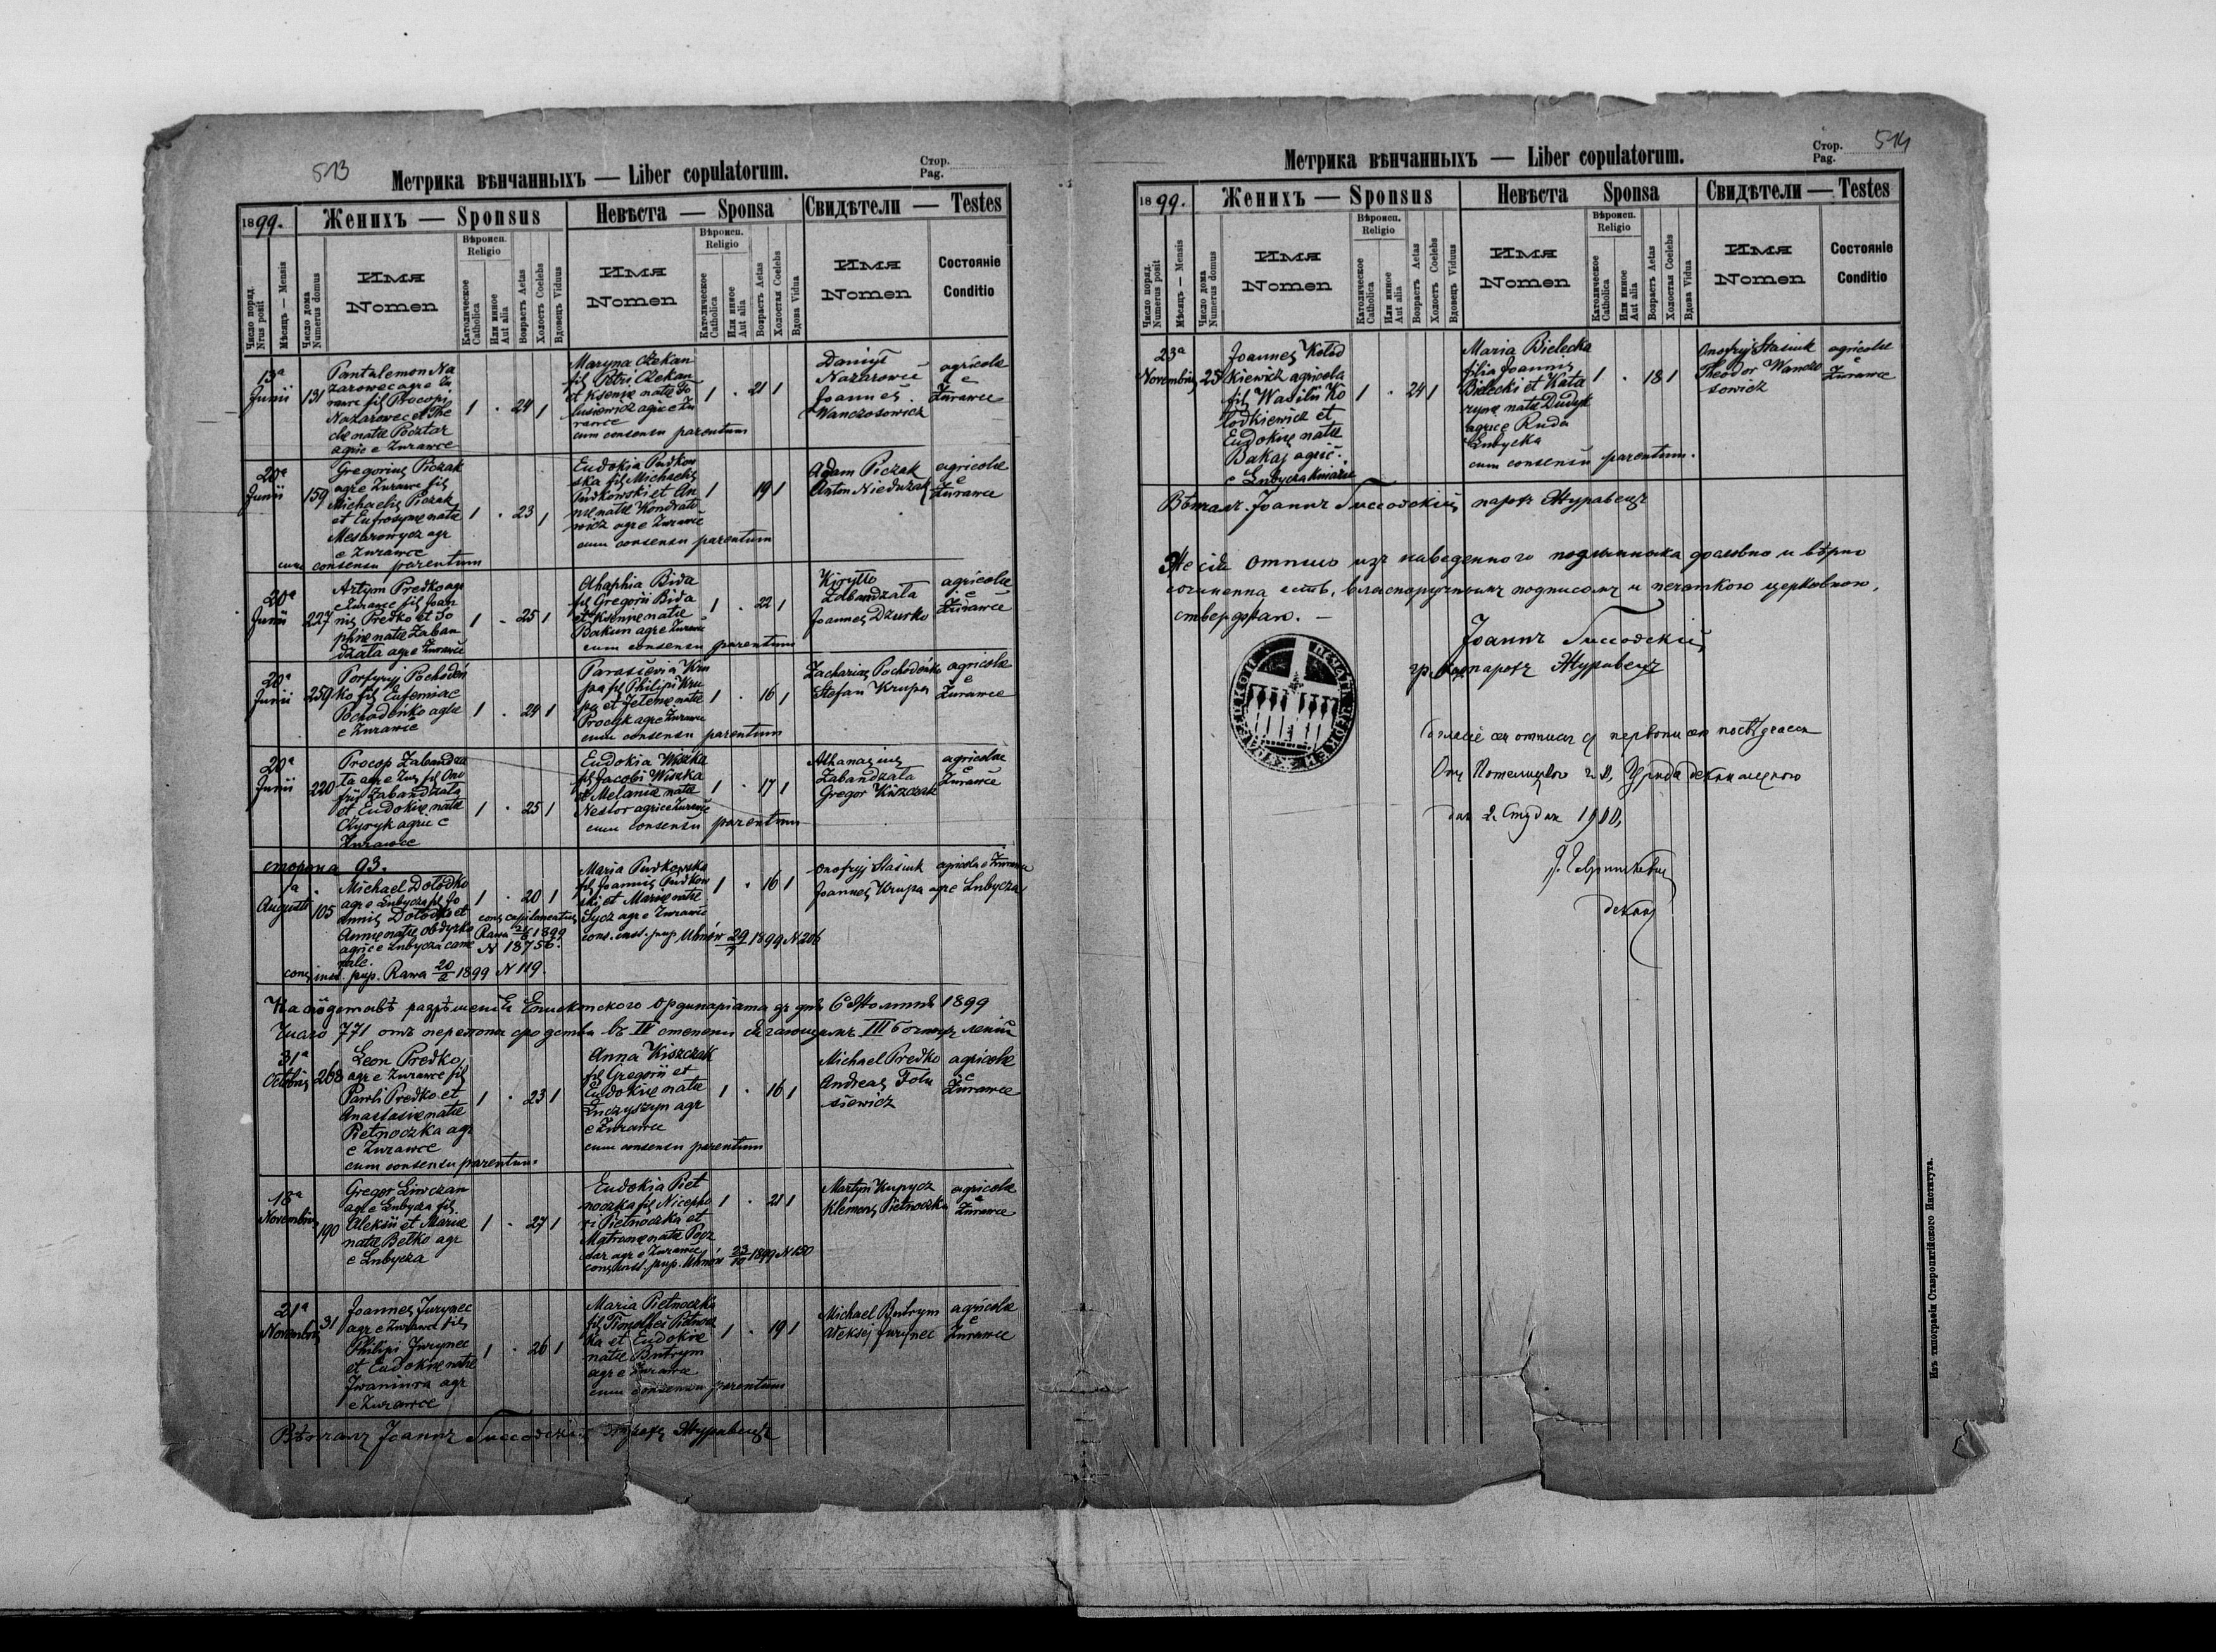 513
Метрика вѣнчанныхъ — Liber copulatorum.
Стор.
Pag.
1899.
Женихъ — Sponsus
Невѣста — Sponsa
Свидѣтели — Testes
Число поряд.
Nrus posit
Мѣсяць — Mensis
Число дома
Numerus domus
Имя
Nomen
Вѣроисп.
Religio
Католическое
Catholica
Или инное
Aut alia
Возрастъ Aetas
Холостъ Coelebs
Вдовецъ Viduus
Имя
Nomen
Вѣроисп.
Religio
Католическое
Catholica
Или инное
Aut alia
Возрастъ Aetas
Холостая Coelebs
Вдова Vidua
Имя
Nomen
Состояніе
Conditio
13a
Junii
131
Pantalemon Na
zarowec agr e Żu
rawce fil Procopii
Nazarowec et The
clae natae Pocztar
agric e Żurawce
1 . 24 1
Maryna Czekan
fil Petri Czekan
et Kseniae natae Fo
lusiewicz agric e Żu
rawce
cum consensu parentum
1 . 21 1
Daniył
Nazarowec
Joannes
Wanczosowicz
agricolae
e
Żurawce
20a
Junii
159
Gregorius Piczak
agr e Żurawce fil
Michaelis Piczak
et Eufrosynae natae
agr
e Żurawce
cum consensu parentum
1 . 23 1
Eudokia Pudkow
ska fil Michaelis
Pudkowski et An
nae natae Kondrato
wicz agr e Żurawce
cum consensu parentum
1 19 1
Adam Piczak
Anton Nieduzak
agricolae
e
Żurawce
20a
Junii
227
Artym Predko agr
e Żurawce fil Joan
nis Predko et So
phiae natae Zaban
dzała agr e Żurawce
1 . 25 1
Ahaphia Bida
fil Gregorii Bida
et Kseniae natae
Bakun agr e Żurawce
cum consensu parentum
1 . 22 1
Kiryłło
Zabandzała
Joannes Dzurko
agricolae
e
Żurawce
20a
Junii
259
Porfyryj Pochodeń
ko fil Eufemiae
Pochodeńko agr
e Żurawce
1 . 24 1
Parascevia Kru
pa fil Philipi Kru
pa et Helenae natae
Procyk agr e Żurawce
cum consensu parentum
1 . 16 1
Zacharias Pochodeńko
Stefan Krupa
agricolae
e
Żurawce
20a
Junii
220
Procop Zabandza
ła agr e Żur fil Ono
frii Zabandzała
et Eudokiae natae
agric e
Żurawce
1 . 25 1
Eudokia Wiszka
fil Jacobi Wiszka
et Melaniae natae
Nestor agric e Żurawce
cum consensu parentum
1 . 17 1
Athanasius
Zabandzała
Gregor Kiszczak
agricolae
e
Żurawce
сторона 93.
1a
Augusti
105
Michael Dołodko
agr e Lubycza fil Jo
annis Dołodko et
Annae natae
agric e Lubycza came
ralc.
cons inst. pup. Rawa 20/2 1899 N 119.
1 . 20 1
cons capitaneatus
Rawa 1899
N 18756.
Maria Pudkowska
fil Joannis Pudkow
ski et Mariae natae
Sycz agr e Żurawce
cons. inst. pup Uhnów 29/7 1899 N 206
1 . 16 1
Onofryj Stasiuk
Joannes Krupa
agricola e Żurawce
agr e Lubycza
На подставѣ разрѣшенія Епископского Ординаріата дъ днѣ 1899
Число 771 отъ перепоны сродства въ IV степени III бочнор линіи
31a
Octobris
268
Leon Predko
agr e Żurawce fil
Pawli Predko et
Anastasiae natae
Pietnoczka agr
e Żurawce
cum consensu parentum
1 . 23 1
Anna Kiszczak
fil Gregorii et
Eudokiae natae
Łuczyszyn agr
e Żurawce
cum consensu parentum
1 . 16 1
Michael Predko
Andreas Folu
siewicz
agricolae
e
Żurawce
18a
Novembris
190
Gregor Liwczan
agr e Lubycza fil.
Aleksii et Mariae
natae Bełko agr
e Lubycza
1 . 27 1
Eudokia Piet
noczka fil Nicepho
ri Pietnoczka et
Matronae natae Pocz
tar agr e Żurawce
cons inst. pup. Uhnów 23/10 1899 N 150
1 . 21 1
Martyn Kupycz
Klemens Pietnoczka
agricolae
e
Żurawce
21a
Novembris
31
Joannes Jurynec
agr e Żurawce fil
Philipi Jurynec
et Eudokiae natae
Iwaniura agr
e Żurawce
1 . 26 1
Maria Pietnoczka
fil Timothei Pietnocz
ka et Eudokiae
natae Butrym
agr e Żurawce
cum consensu parentum
1 . 19 1
Michael Butrym
Aleksej Jurynec
agricolae
e
Żurawce
Вѣнчалъ Іоаннъ парохъ Журавець
514
Метрика вѣнчанныхъ — Liber copulatorum.
Стор.
Pag.
1899.
Женихъ — Sponsus
Невѣста Sponsa
Свидѣтели — Testes
Число поряд.
Numerus posit
Мѣсяць — Mensis
Число дома
Numerus domus
Имя
Nomen
Вѣроисп.
Religio
Католическое
Catholica
Или инное
Aut alia
Возрастъ Aetas
Холостъ Coelebs
Вдовецъ Viduus
Имя
Nomen
Вѣроисп.
Religio
Католическое
Catholica
Или инное
Aut alia
Возрастъ Aetas
Холостая Coelebs
Вдова Vidua
Имя
Nomen
Состояніе
Conditio
23a
Novembris
25
Joannes Kołod
kiewicz agricola
fil Wasilii Ko
łodkiewicz et
Eudokiae natae
Bakaj agric.
e Lubycza Kniazie
1 . 24 1
Maria Bielecka
filia Joannis
Bielecki et Kata
rynae natae Dudyk
agric e Ruda
Lubycka
cum consensu parentum.
1 . 18 1
Onofryj Stasiuk
Theodor Wanczo
sowicz
agricolae
e
Żurawce
Вѣнчалъ Іоаннъ парохъ Журавець
Же сія отпись изъ наведенного подлинника дословно и вѣрно
сочиненна есть, власноручнымъ подписомъ и печаткою церковною,
ствердфаю. —
Іоаннъ
парохъ Журавець
дня 2. Студня 1900,
деканъ
Изъ типографіи Ставропигійского Института.